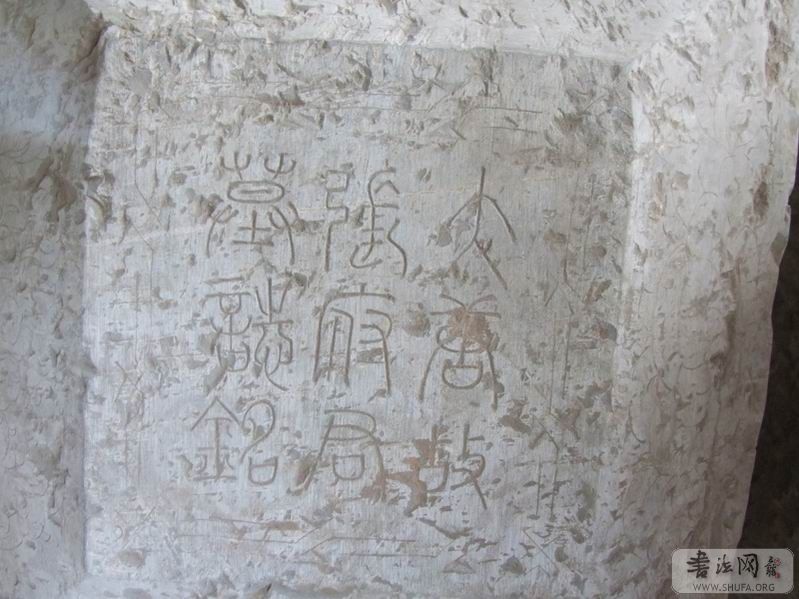 大唐故
張府君
墓誌銘
書法网
WWW.SHUFA.ORG